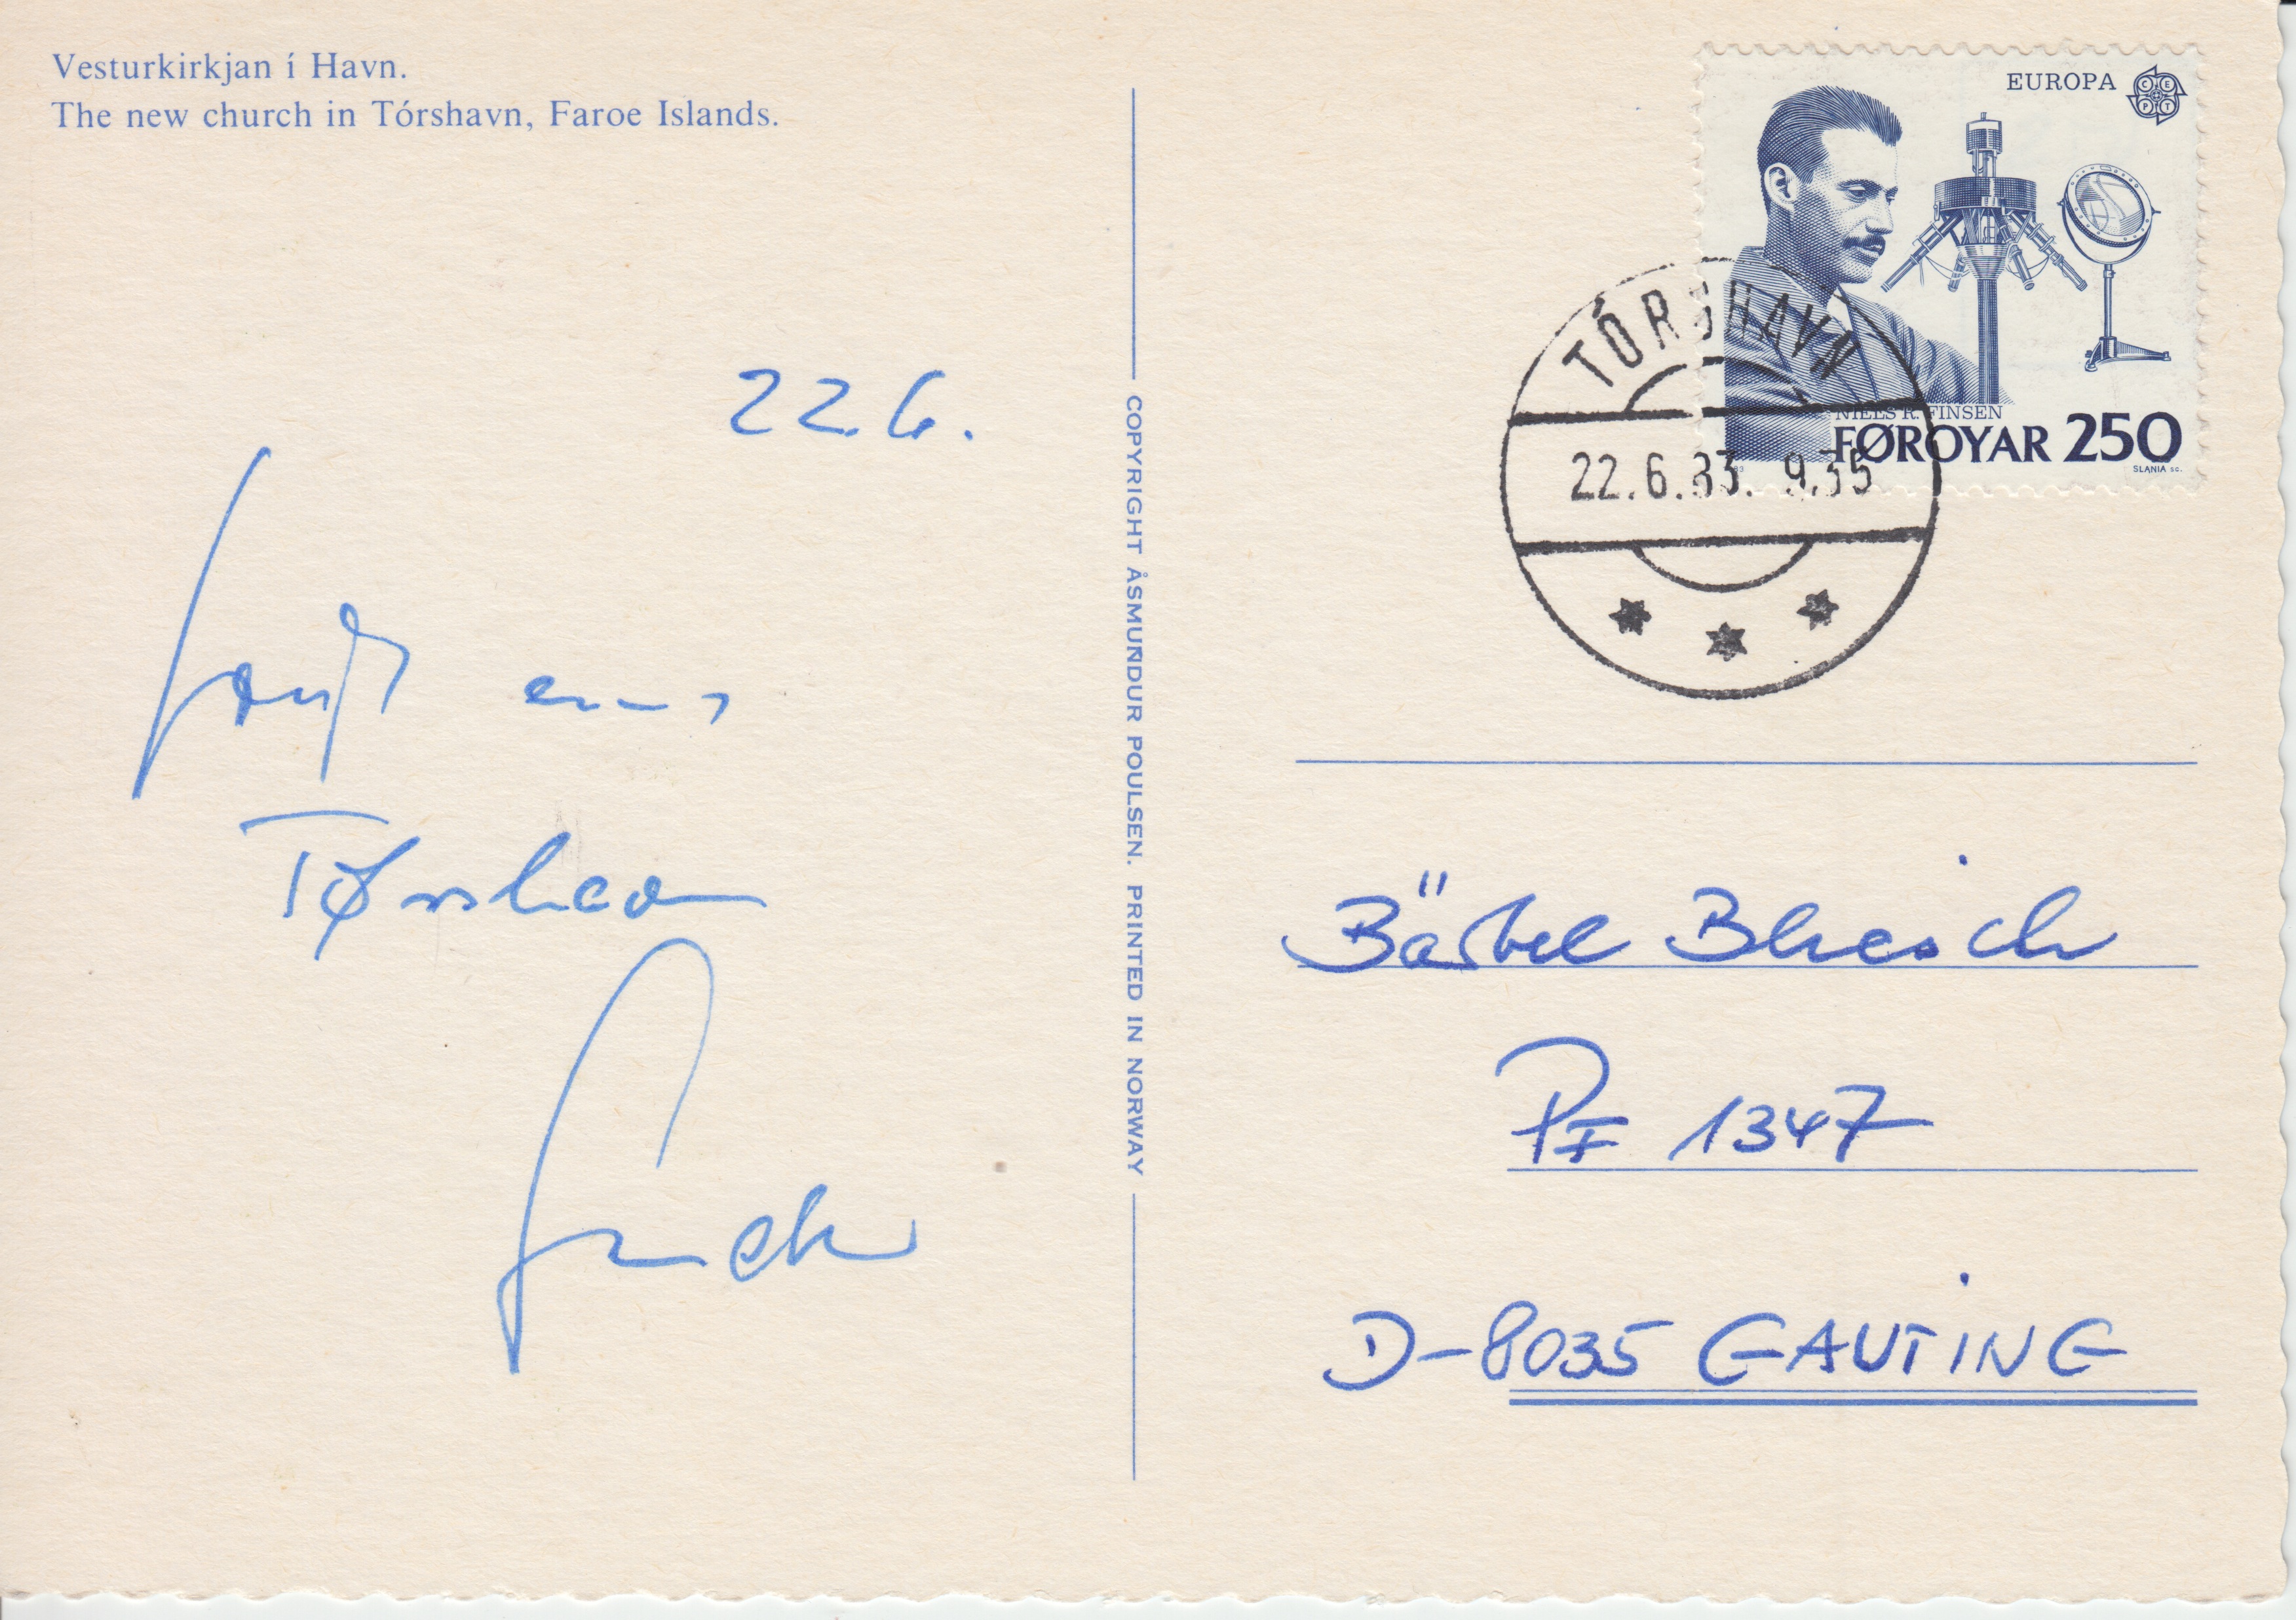 Vesturkirkjan í Havn.
The new church in Tórshavn, Faroe Islands.
22.6.
aus
Tørshavn
COPYRIGHT ÅSMUNDUR POULSEN. PRINTED IN NORWAY
EUROPA
CEPT
NIELS R. FINSEN
FØROYAR 250
SLANIA SC.
TÓRSHAVN
22.6.83. 9.35
Bärbel
PF 1347
D-8035 GAUTING